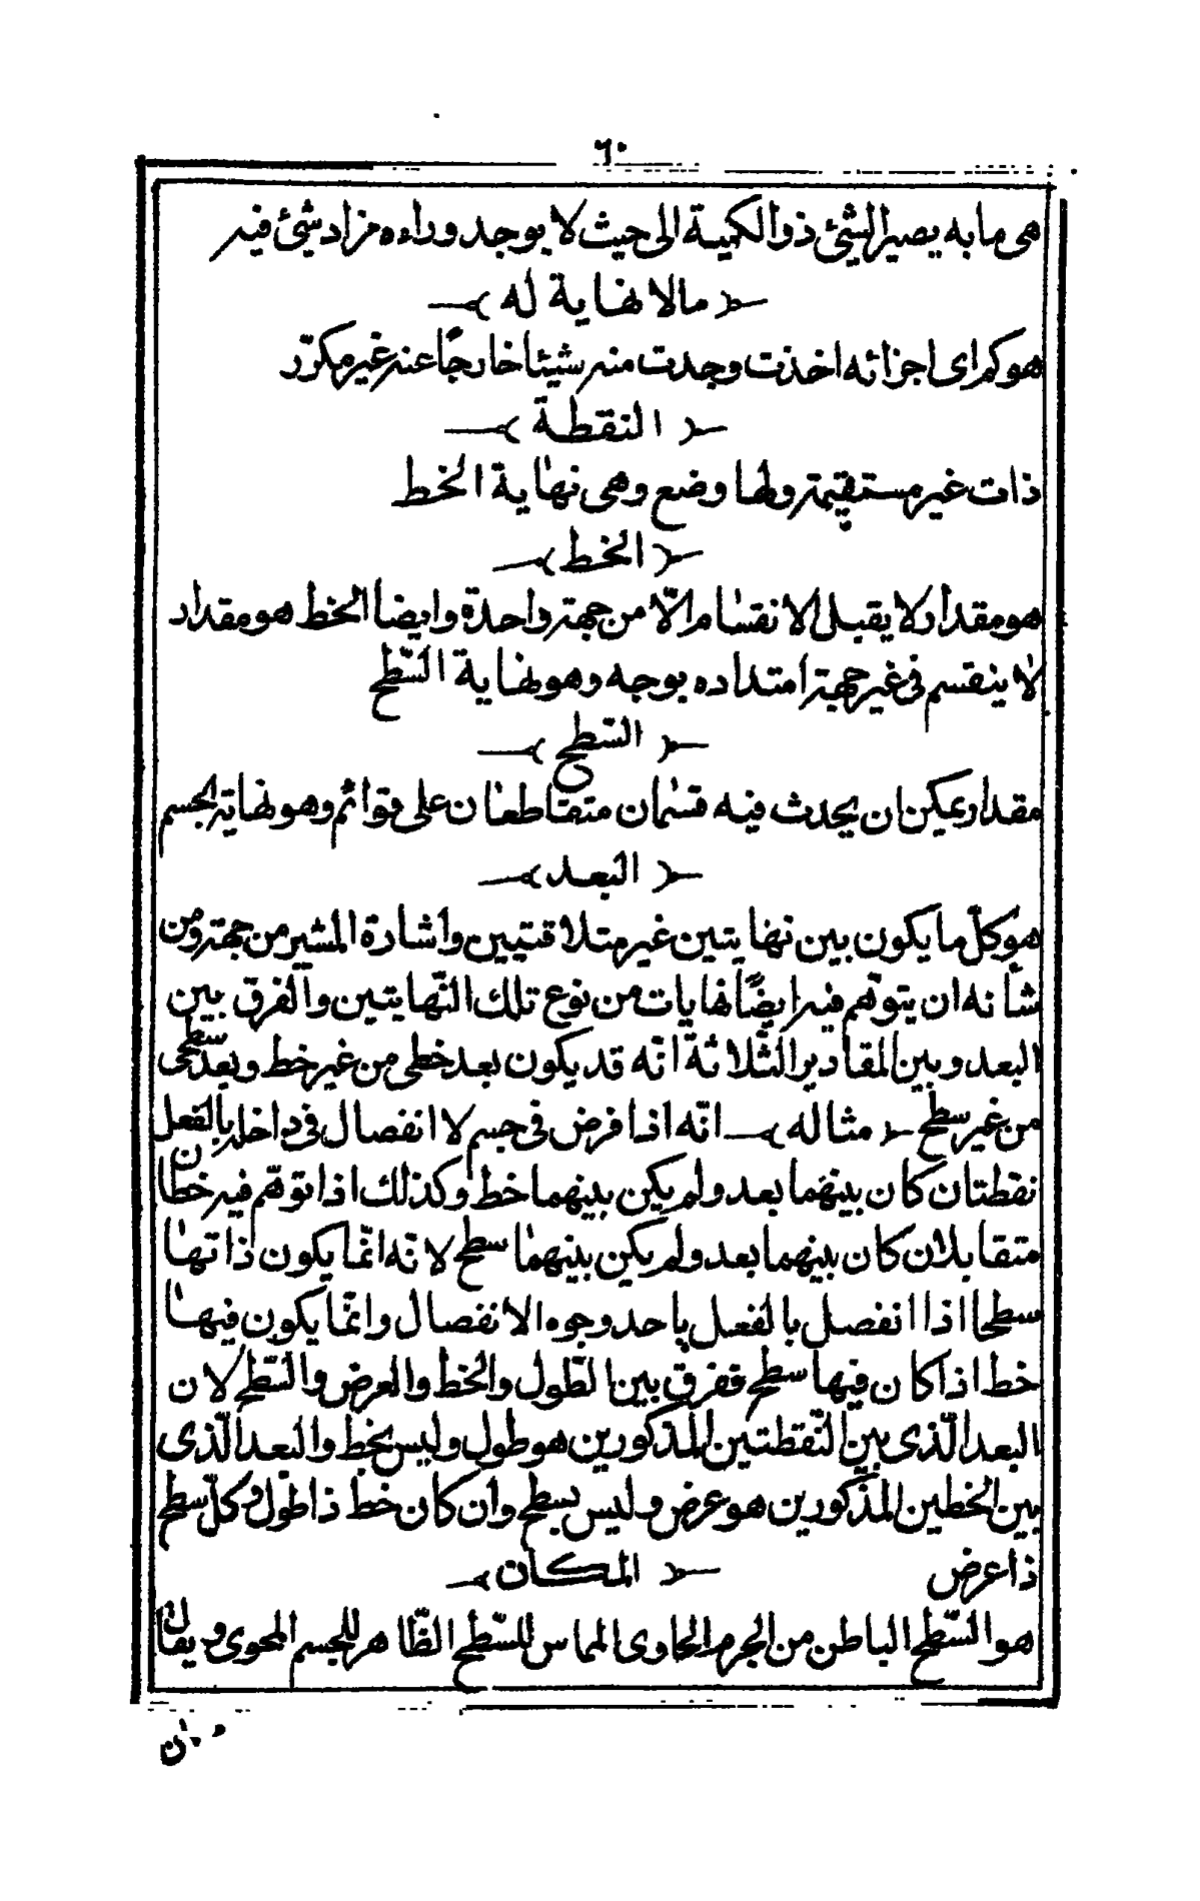 ٦٠
هى ما به يصير الشيئ ذو الكمية الى حيث لا يوجد وراءه مزاد شيئ فيه
﴿ مالا نهاية له ﴾
هو كم اى اجزائه اخذت وجدت منه شيئا خارجًا عنه غير مكرّر
﴿ النقطة ﴾
ذات غير مستقيمة ولها وضع وهى نهاية الخط
﴿ الخط ﴾
هو مقدار لا يقبل الانقسام الّا من جهة واحدة وايضا الخط هو مقدار
لا ينقسم فى غير جهة امتداده بوجه وهو نهاية السّطح
﴿ السّطح ﴾
مقدار يمكن ان يحدث فيه قسمان متقاطعان على قوائم وهو نهاية الجسم
﴿ البعد ﴾
هو كلّ ما يكون بين نهايتين غير متلاقتيين واشارة المشير من جهة ومن
شأنه ان يتوهّم فيه ايضًا نهايات من نوع تلك النّهايتين والفرق بين
البعد وبين المقادير الثّلاثة انّه قد يكون بعد خطى من غير خط وبعد سطحى
من غير سطح ﴿ مثاله ﴾ انّه اذا فرض فى جسم لا انفصال فى داخله بالفعل
نقطتان كان بينهما بعد ولم يكن بينهما خط وكذلك اذا توهّم فيه خطان
متقابلان كان بينهما بعد ولم يكن بينهما سطح لانّه انّما يكون ذاتها
سطحا اذا انفصل بالفعل باحد وجوه الانفصال وانّما يكون فيها
خط اذا كان فيها سطح ففرق بين الطّول والخط والعرض والسّطح لان
البعد الّذى بين النّقطتين المذكورين هو طول وليس بخط والبعد الّذى
بين الخطين المذكورين هو عرض وليس بسطح وان كان خط ذا طول وكلّ سطح
ذا عرض
﴿ المكان ﴾
هو السّطح الباطن من الجرم الحاوى المماس للسّطح الظّاهر للجسم المحوى ويقال